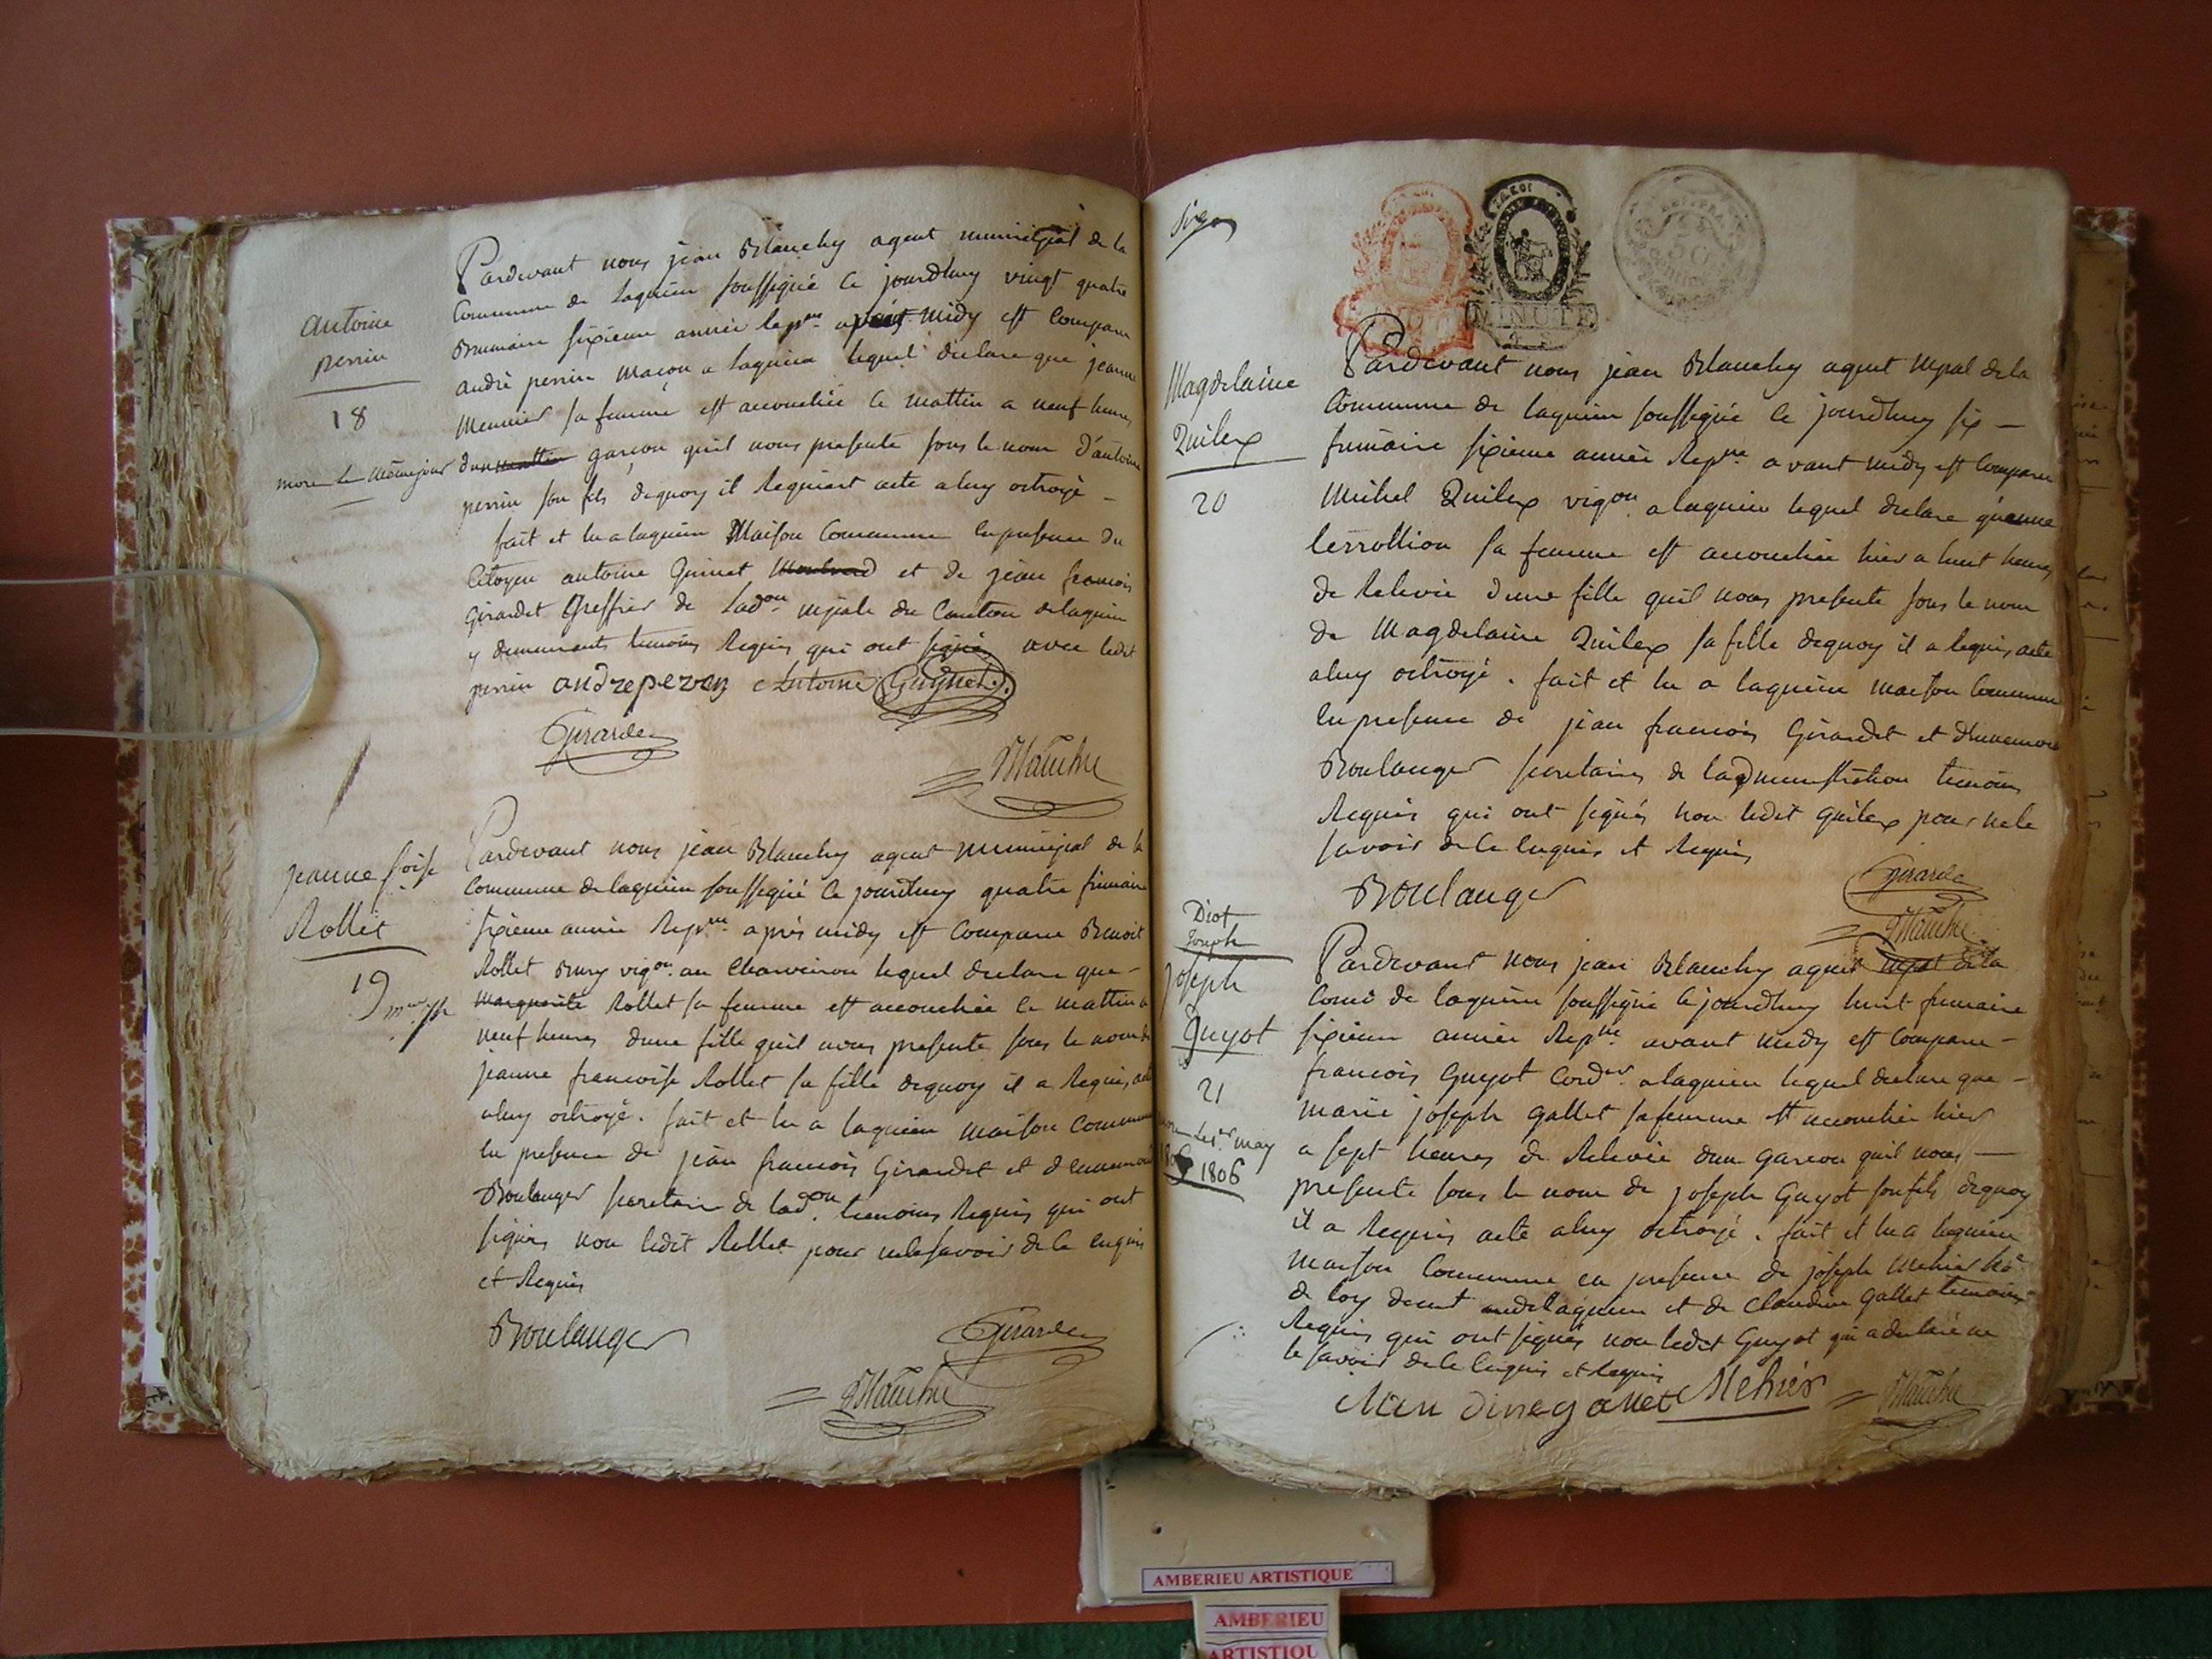 antoine
perrin
18
mort le même jour
Pardevant nous jean Blanchy agent municipal de la
Commune de Lagnieu soussigné ce jourdhuy vingt quatre
Brumaire sixieme année rep.ne après midy est comparu
andré perrin maçon a Lagnieu lequel declare que jeanne
Meunier sa femme est accouchée ce mattin a neuf heures
dun mattin garçon quil nous presente sous le nom d'antoine
perrin son fils dequoy il requiert acte aluy octroyé
fait et lu a lagnieu Maison Commune en presence du
Citoyen antoine Guinet et de jean francois
Girardet Greffier de Lad.on mpale du Canton delagnieu
y demeurants temoins requis qui ont signés avec ledit
perrin andre peron Antoine Guynet
Girardet
Blanchy
jeanne f.oise
Rollet
19
Pardevant nous jean Blanchy agent municipal de la
Commune de lagnieu soussigné ce jourdhuy quatre frimaire
sixieme année Rep.ne après midy est comparu Benoit
Rollet Bury vig.on au Charveiron lequel declare que
marguerite Rollet sa femme est accouchée ce mattin a
neuf heures dune fille quil nous presente sous le nom de
jeanne francoise Rollet sa fille dequoy il a requis acte
aluy octroyé. fait et lu a lagnieu maison commune
en presence de jean francois Girardet et
Boulanger secretaire de lad.on temoins requis qui ont
signés non ledit Rollet pour nele savoir de ce enquis
et requis
Boulanger
Girardet
Blanchy
MINUTE
Magdelaine
Quilex
20
Pardevant nous jean Blanchy agent mpal dela
Commune de lagnieu soussigné ce jourdhuy six
frimaire sixieme année Rep.ne avant midy est comparu
Michel Quilex vig.on a lagnieu lequel declare qu'anne
sa femme est accouchée hier a huit heures
de relevée dune fille quil nous presente sous le nom
de Magdelaine Quilex sa fille dequoy il a requis acte
aluy octroyé. fait et lu a lagnieu maison commune
en presence de jean francois Girardet et
Boulanger secretaires de ladministration temoins
requis qui ont signés non ledit Quilex pour nele
savoir de ce enquis et requis
Boulanger
Girardet
Blanchy
Diot
Joseph
Joseph
Guyot
21
mort le 1.er may
1806
Pardevant nous jean Blanchy agent mpal dela
Comē de lagnieu soussigné ce jourdhuy huit frimaire
sixieme année Rep.ne avant midy est comparu
francois Guyot cord.er a lagnieu lequel declare que
marie joseph gallet sa femme est accouchée hier
a sept heures de relevée dun garcon quil nous
presente sous le nom de joseph Guyot son fils dequoy
il a requis acte aluy octroyé. fait et lu a lagnieu
maison Commune en presence de joseph Mehier
de loy demt audit lagnieu et de Claudine gallet temoins
requis qui ont signés non ledit Guyot qui a declaré ne
le savoir de ce enquis et requis
Mehier
Blanchy
AMBERIEU ARTISTIQUE
AMBERIEU
ARTISTIQU